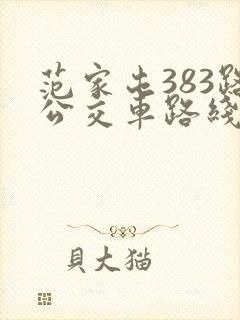 范家屯383路
公交車路綫
貝大猫